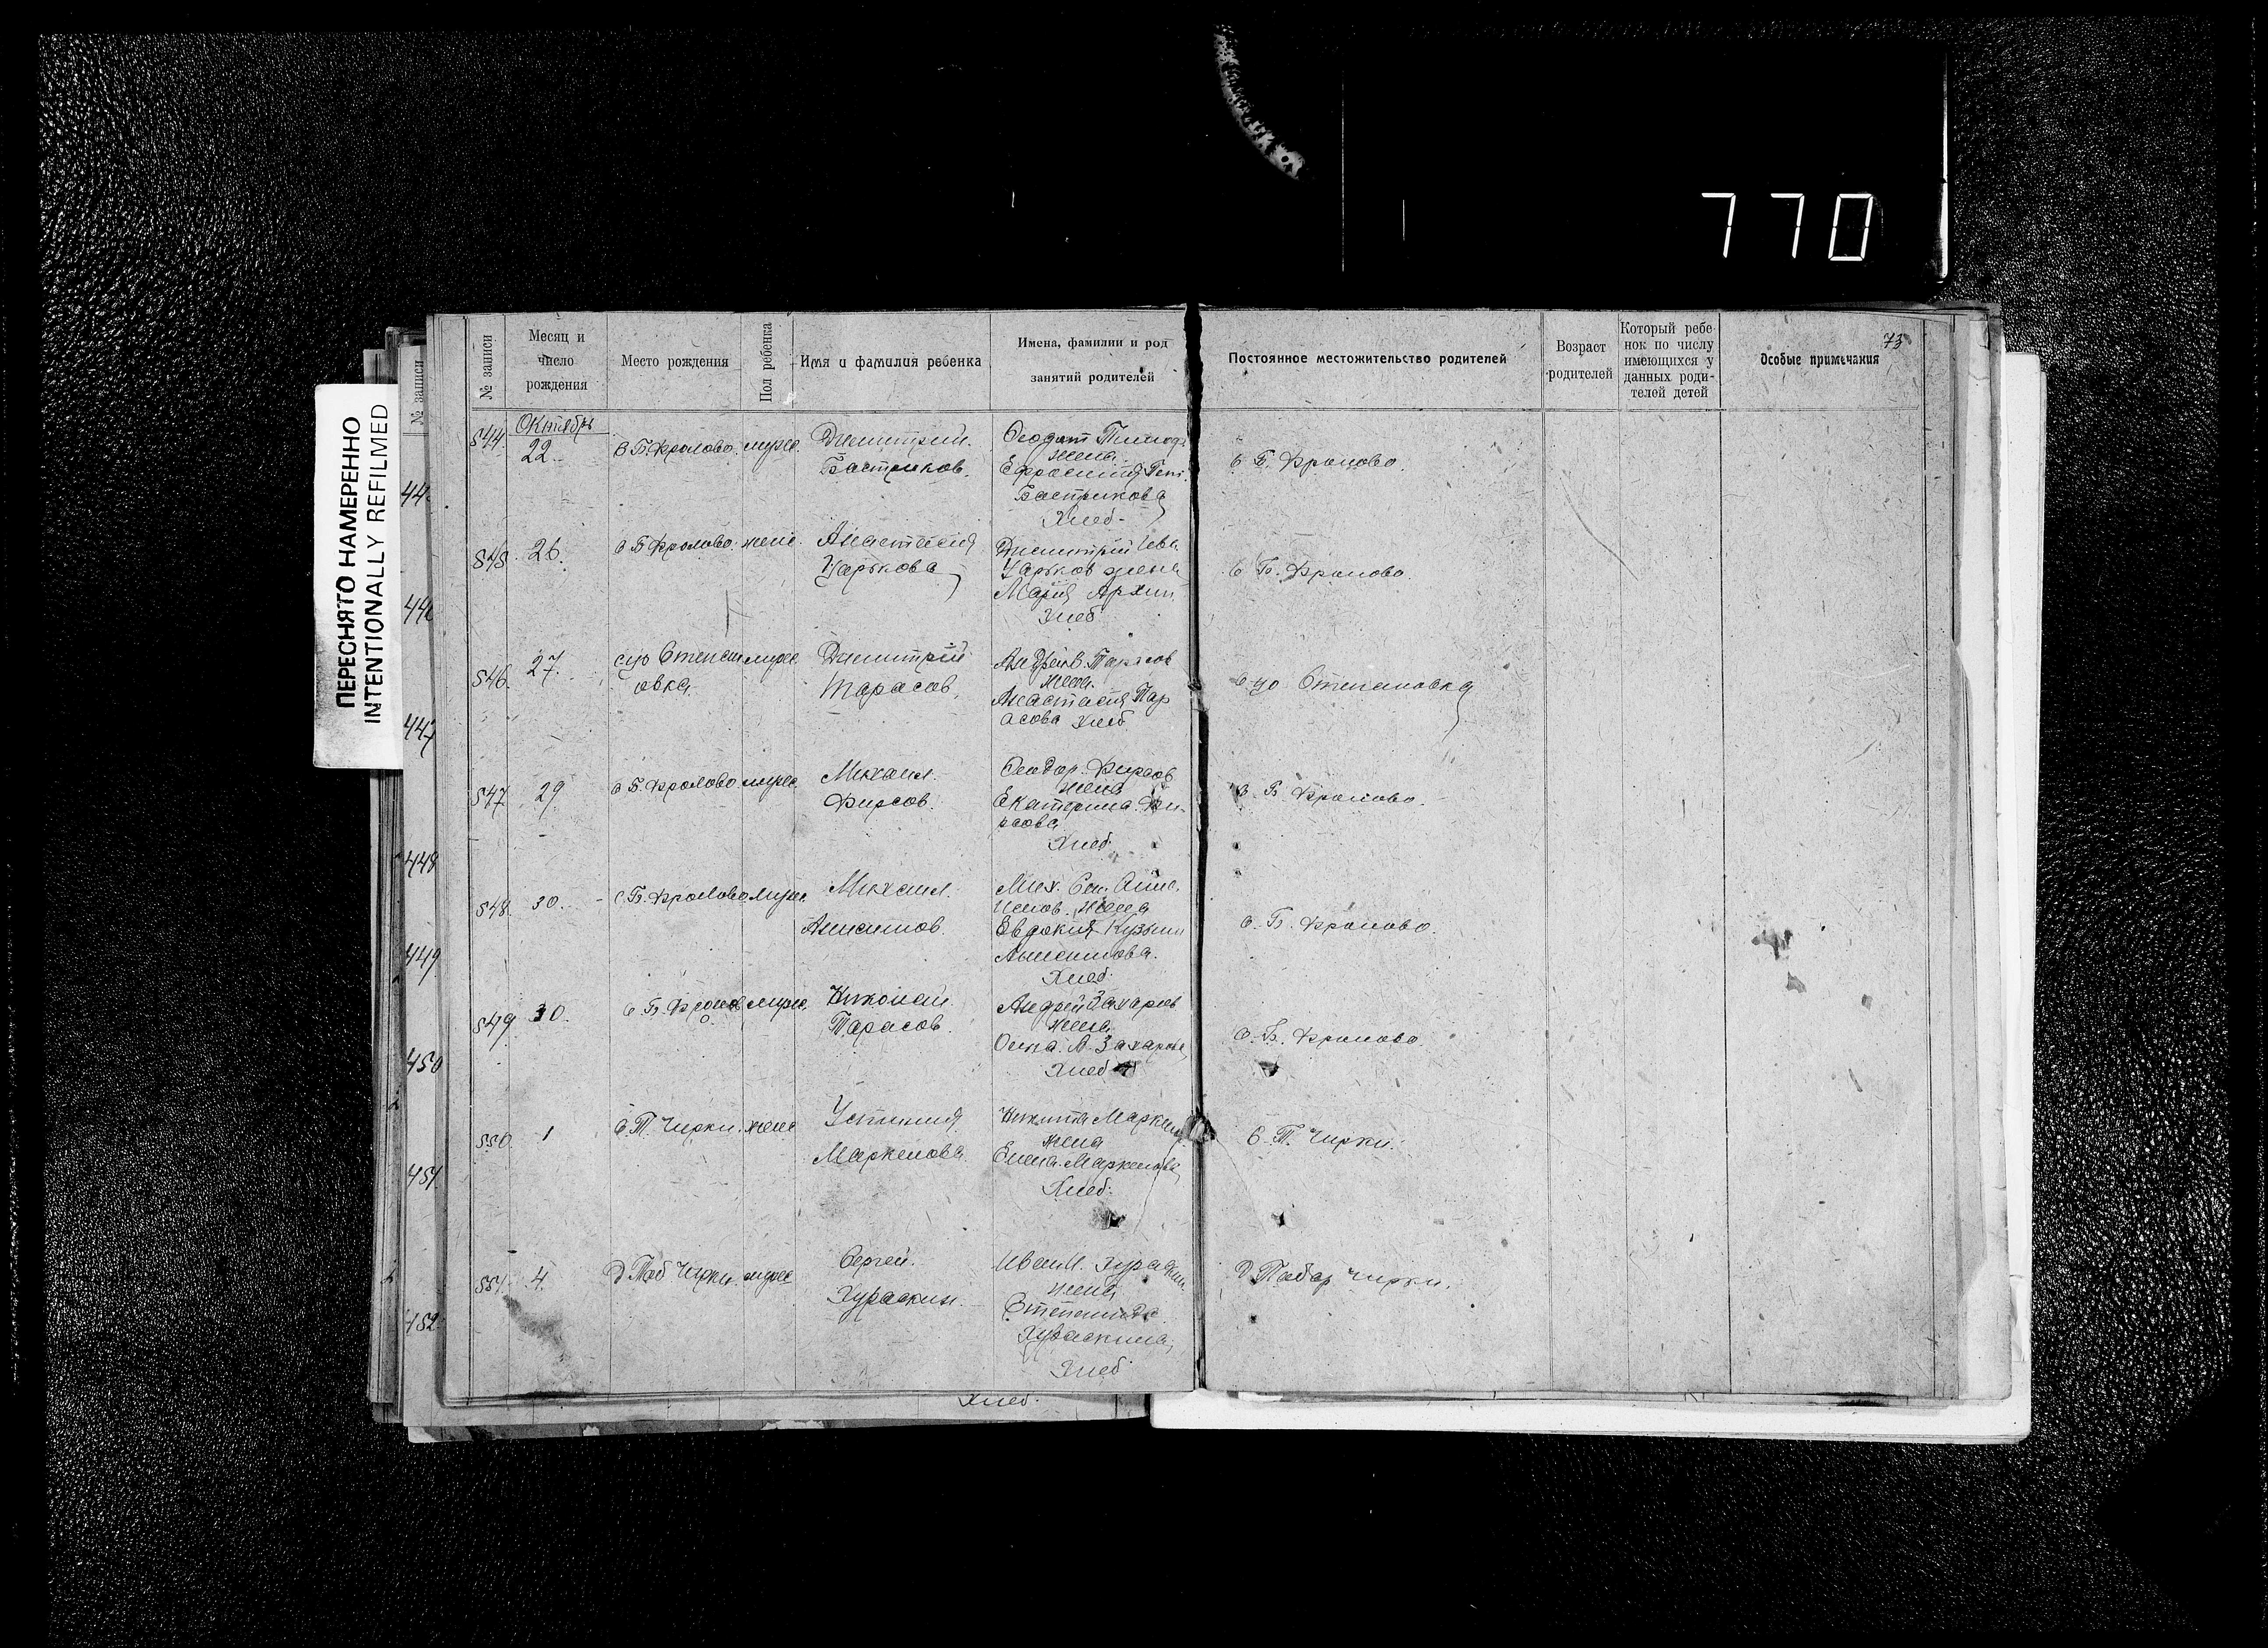 770
ПЕРЕСНЯТО НАМЕРЕННО
INTENTIONALLY REFILMED
№ записи
44
446
447
448
449
450
451
452
Хлеб.
73
№ записи
Месяц и число рождения
Место рождения
Пол ребенка
Имя и фамилия ребенка
Имена, фамилии и род занятий родителей
Постоянное местожительство родителей
Возраст родителей
Который ребенок по числу имеющихся у данных родителей детей
Особые примечания
Октябрь
544. 22. с Б. Фролово. муж.
Димитрий.
Бастриков.
Феодот Тимоф.
жена
Ефросиния
Бастрикова
Хлеб.
с Б. Фролово.
545. 26. с Б. Фролово. жен.
Анастасия
Царькова
Димитрий Ива.
Царьков жена
Мария Архип.
Хлеб
с Б. Фролово.
546. 27. Степан
овка
муж.
Димитрий
Тарасов.
Андрей В. Тарасов
жена.
Анастасия Тар
асова хлеб
Степановка
547 29 с Б. Фролово муж.
Михаил.
Фирсов.
Феодор. Фирсов
жена
Екатерина. Фи-
рсова
Хлеб
с Б Фролово.
548. 30. с Б. Фролово муж.
Михаил.
Анисимов.
Мих. Сем. Анис.
имов. жена
Евдокия Кузьм
Анисимова.
Хлеб.
с. Б. Фролово.
549 30. с Б. Фролов
о.
муж.
Николай.
Тарасов.
Андрей Захаров
жена
А. Захарова
Хлеб
с. Б. Фролово.
550. 1 с. Т. Чирки. жен
Устиния
Маркелова.
Никита Маркел
жена
Елена. Маркелова
Хлеб.
С. Т. Чирки.
551. 4. Д Таб Чирки. муж.
Сергей.
Хураскин.
Иван И. Хураскин
жена
Степанида
Хураскина,
Хлеб
Д Табар Чирки.